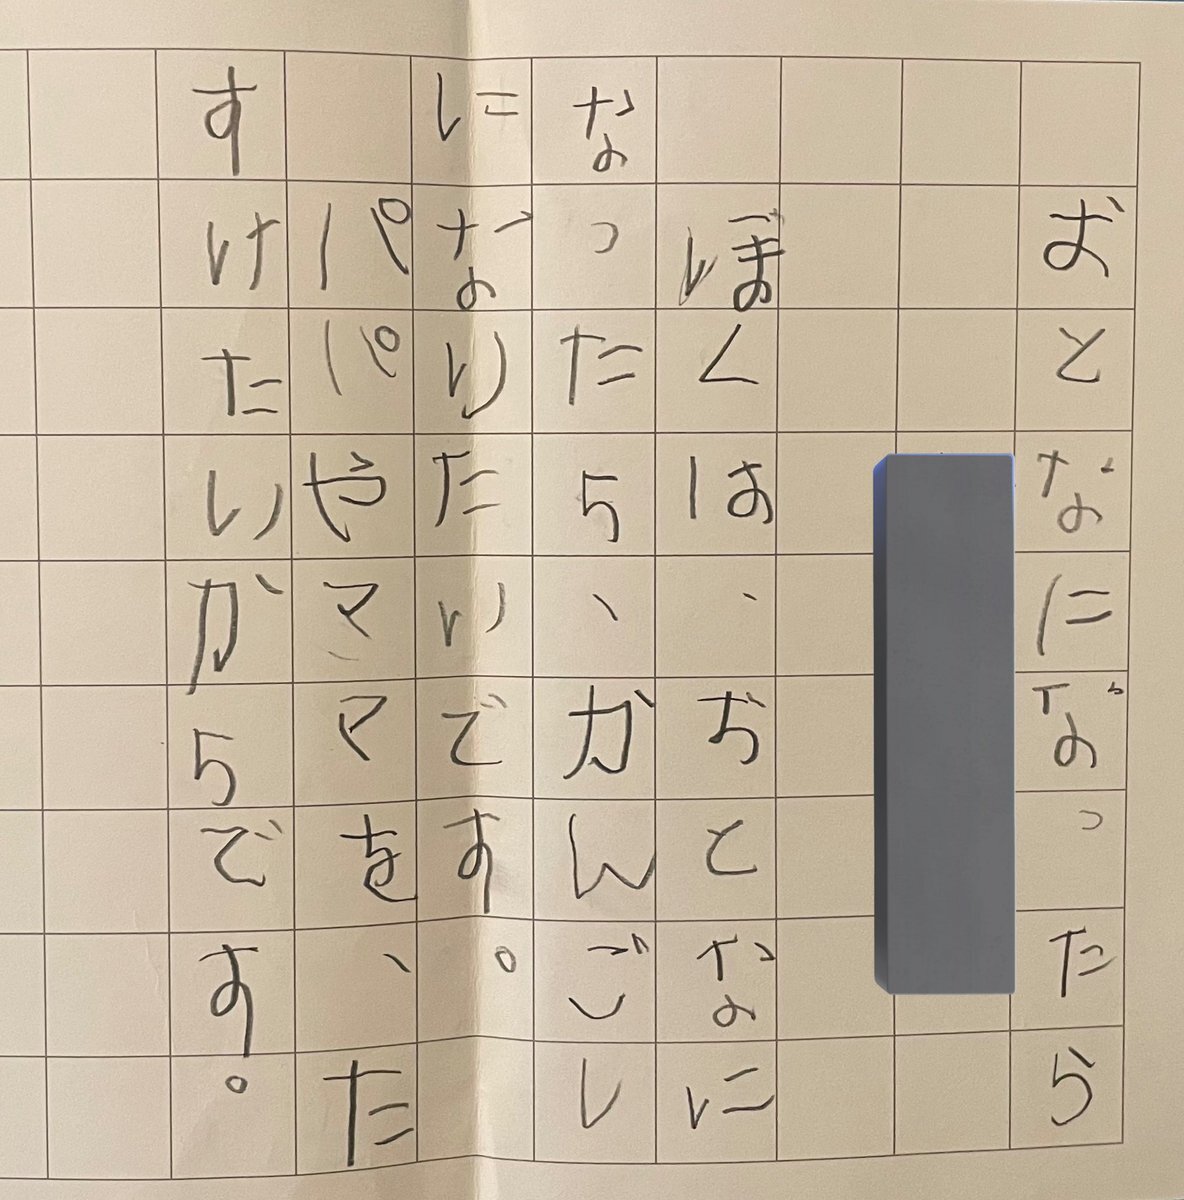 おとなになったら
ぼくは、おとなに
なったら、かんごし
になりたいです。
パパやママを、た
すけたいからです。